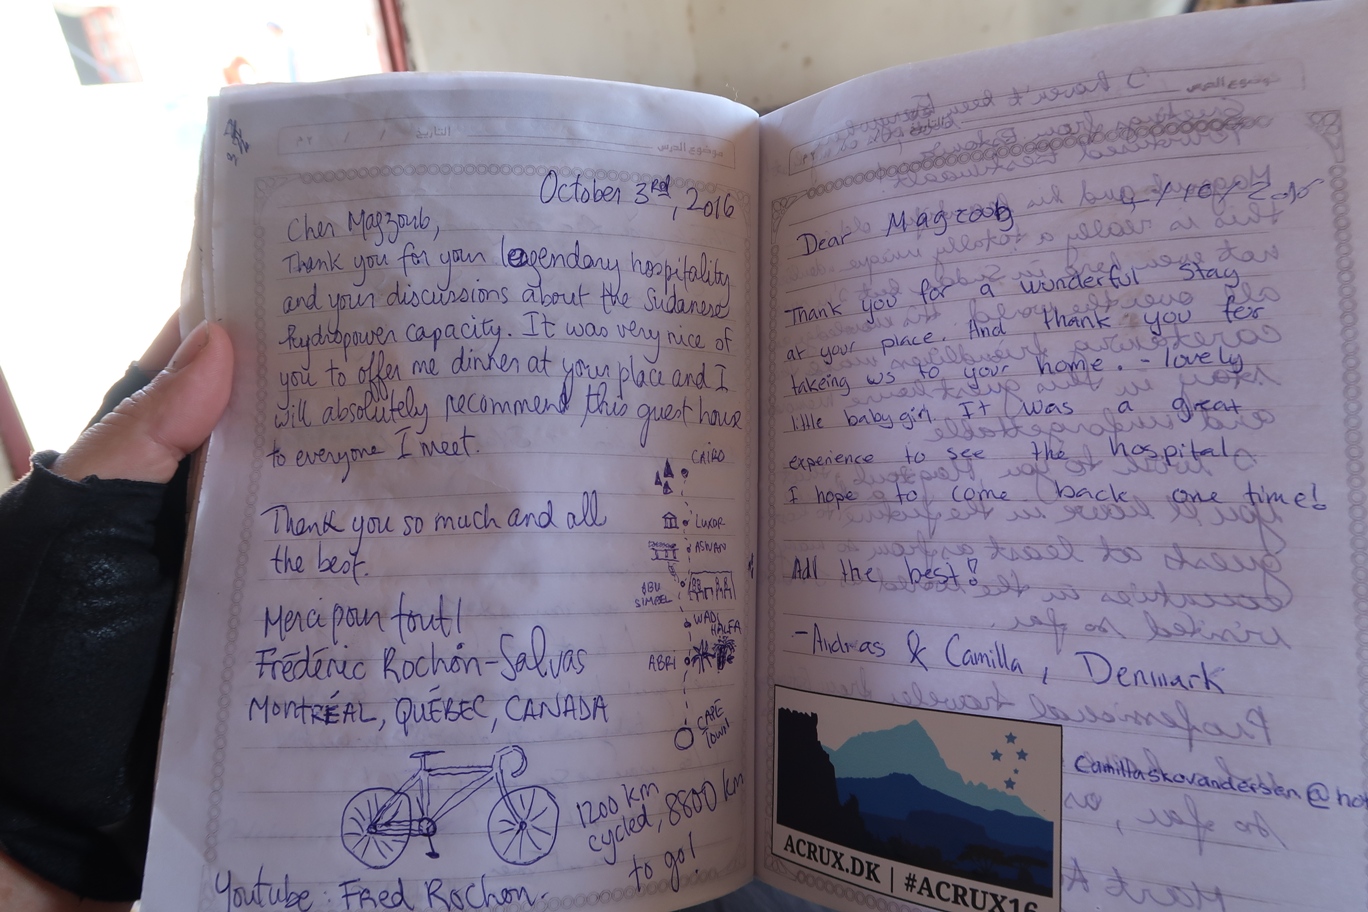 التاريخ / / ٢٠م
موضوع الدرس
October 3rd, 2016
Cher Magzoub,
Thank you for your legendary hospitality
and your discussions about the Sudanese
hydropower capacity. It was very nice of
you to offer me dinner at your place and I
will absolutely recommend this guest house
to everyone I meet.
Thank you so much and all
the best.
Merci pour tout!
Frédéric Rochon-Salvas
MONTRÉAL, QUÉBEC, CANADA
CAIRO
LUXOR
ASWAN
ABU
SIMBEL
WADI
HALFA
ABRI
CAPE
TOWN!
1200 km
cycled, 8800 km
to go!
Youtube: Fred Rochon.
موضوع الدرس
Dear Magzoob
Thank you for a wonderful stay
at your place. And thank you for
takeing us to your home. - lovely
little baby girl. It was a great
experience to see the hospital.
I hope to come back one time!
All the best!
- Andreas & Camilla, Denmark
camillaskovandersen@hot
ACRUX.DK | #ACRUX16